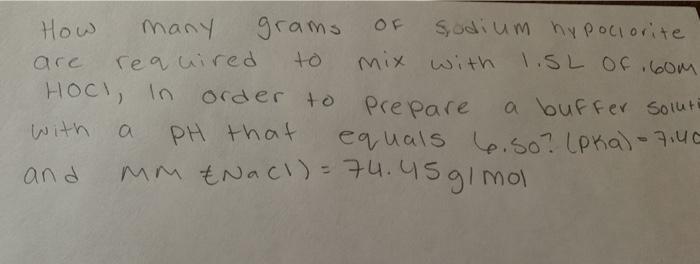 How many grams of sodium hypoclorite
are required to mix with 1.5L of .60M
HOCl, In order to prepare a buffer soluti
with a pH that equals 6.50? (pKa) = 7.40
and MM (NaCl) = 74.45g/mol